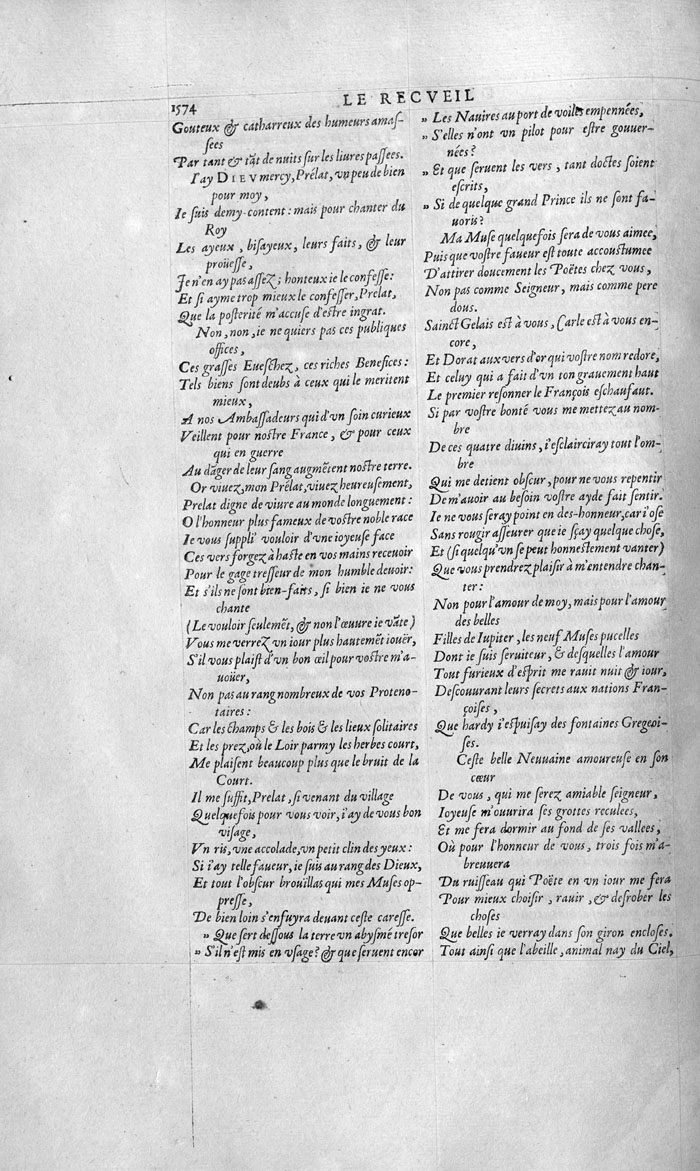 1574
LE RECVEIL
Gouteux & catharreux des humeurs amaſ-
ſees
Par tant & tāt de nuits ſur les liures paſſees.
I'ay DIEV mercy, Prélat, vn peu de bien
pour moy,
Ie ſuis demy-content : mais pour chanter du
Roy
Les ayeux, biſayeux, leurs faits, & leur
proüeſſe,
Je n'en ay pas aſſez ; honteux ie le confeſſe:
Et ſi ayme trop mieux le confeſſer, Prelat,
Que la poſterité m'accuſe d'eſtre ingrat.
Non, non, ie ne quiers pas ces publiques
offices,
Ces graſſes Eueſchez, ces riches Benefices :
Tels biens ſont deubs à ceux qui le meritent
mieux,
A nos Ambaſſadeurs qui d'vn ſoin curieux
Veillent pour noſtre France, & pour ceux
qui en guerre
Au dāger de leur ſang augmētent noſtre terre.
Or viuez, mon Prélat, viuez heureuſement,
Prelat digne de viure au monde longuement :
O l'honneur plus fameux de voſtre noble race
Ie vous ſuppli' vouloir d'vne ioyeuſe face
Ces vers forgez à haſte en vos mains receuoir
Pour le gage treſſeur de mon humble deuoir:
Et s'ils ne ſont bien-faits, ſi bien ie ne vous
chante
(Le vouloir ſeulemēt, & non l'œuure ie vāte)
Vous me verrez vn iour plus hautemēt iouër,
S'il vous plaiſt d'vn bon œil pour voſtre m'a-
uoüer,
Non pas au rang nombreux de vos Proteno-
taires :
Car les champs & les bois & les lieux ſolitaires
Et les prez, où le Loir parmy les herbes court,
Me plaiſent beaucoup plus que le bruit de la
Court.
Il me ſuffit, Prelat, ſi venant du village
Quelquefois pour vous voir, i'ay de vous bon
viſage,
Vn ris, vne accolade, vn petit clin des yeux :
Si i'ay telle faueur, ie ſuis au rang des Dieux,
Et tout l'obſcur brouillas qui mes Muſes op-
preſſe,
De bien loin s'enfuyra deuant ceſte careſſe.
» Que ſert deſſous la terre vn abyſmé treſor
» S'il n'eſt mis en vſage? & que ſeruent encor
» Les Nauires au port de voiles empennées,
» S'elles n'ont vn pilot pour eſtre gouuer-
nées ?
» Et que ſeruent les vers, tant doctes ſoient
eſcrits,
» Si de quelque grand Prince ils ne ſont fa-
uoris ?
Ma Muſe quelquefois ſera de vous aimee,
Puis que voſtre faueur eſt toute accouſtumee
D'attirer doucement les Poëtes chez vous,
Non pas comme Seigneur, mais comme pere
dous.
Sainct Gelais eſt à vous, Carle eſt à vous en-
core,
Et Dorat aux vers d'or qui voſtre nom redore,
Et celuy qui a fait d'vn ton grauement haut
Le premier reſonner le François eſchaufaut.
Si par voſtre bonté vous me mettez au nom-
bre
De ces quatre diuins, i'eſclairciray tout l'om-
bre
Qui me detient obſcur, pour ne vous repentir
De m'auoir au beſoin voſtre ayde fait ſentir.
Ie ne vous ſeray point en des-honneur, car i'oſe
Sans rougir aſſeurer que ie ſçay quelque choſe,
Et (ſi quelqu'vn ſe peut honneſtement vanter)
Que vous prendrez plaiſir à m'entendre chan-
ter :
Non pour l'amour de moy, mais pour l'amour
des belles
Filles de Iupiter, les neuf Muſes pucelles
Dont ie ſuis ſeruiteur, & deſquelles l'amour
Tout furieux d'eſprit me rauit nuit & iour,
Deſcouurant leurs ſecrets aux nations Fran-
çoiſes,
Que hardy i'eſpuiſay des fontaines Gregeoi-
ſes.
Ceſte belle Neuuaine amoureuſe en ſon
cœur
De vous, qui me ſerez amiable ſeigneur,
Ioyeuſe m'ouurira ſes grottes reculees,
Et me fera dormir au fond de ſes vallees,
Où pour l'honneur de vous, trois fois m'a-
breuuera
Du ruiſſeau qui Poëte en vn iour me fera
Pour mieux choiſir, rauir, & deſrober les
choſes
Que belles ie verray dans ſon giron encloſes.
Tout ainſi que l'abeille, animal nay du Ciel,